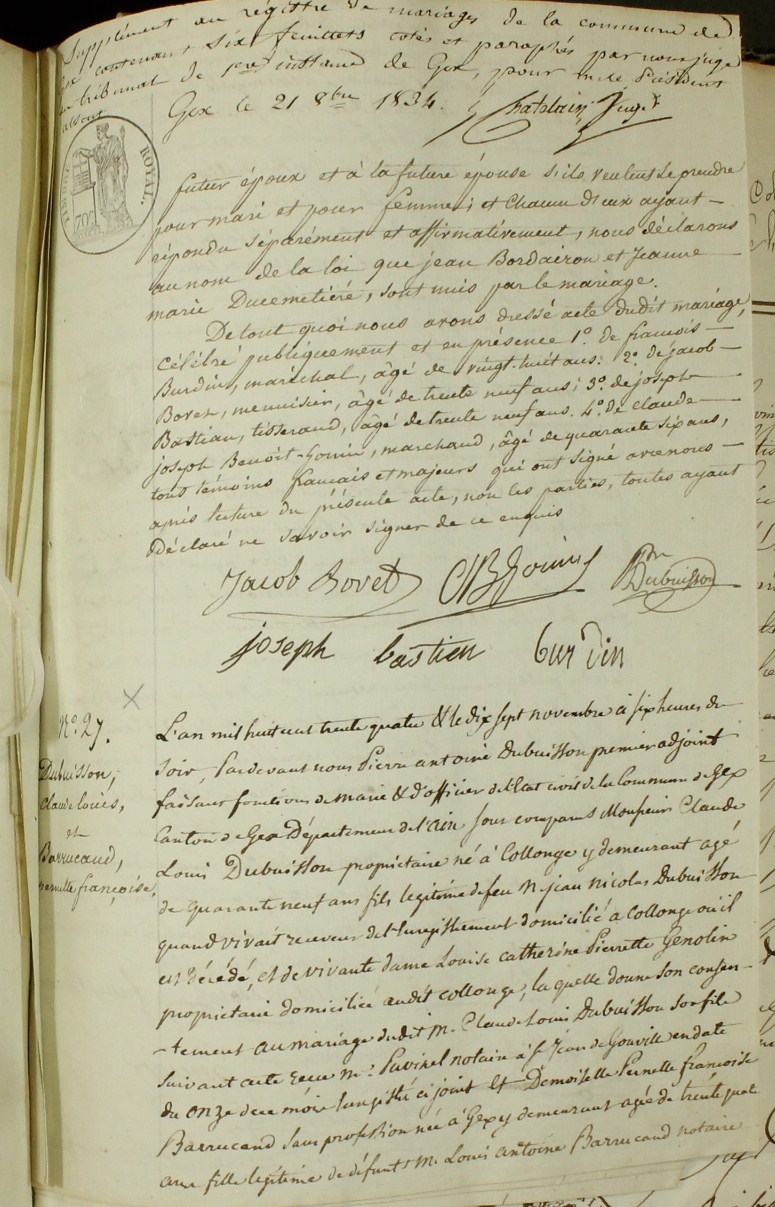 Supplément au registre de mariages de la commune de
Gex contenant six feuillets cotés et paraphés par nous juge
au tribunal de 1ere instance de Gex, pour mr le Président
absent
Gex le 21 8bre 1834. Chatelain Juge
TIMBRE ROYAL
70c
futur époux et à la future épouse s'ils veulent se prendre
pour mari et pour femme; et chacun d'eux ayant
répondu séparément et affirmativement, nous déclarons
au nom de la loi que jean Bordairon et Jeanne
marie Ducemetière, sont unis par le mariage.
De tout quoi nous avons dressé acte dudit mariage,
célébré publiquement et en présence 1o. de francois
Burdin, maréchal, âgé de vingt-huit ans: 2o. de jacob
Bovet, menuisier, âgé de trente neuf ans; 3o. de joseph
Bastian, tisserand, âgé de trente neuf ans. 4o. de claude
joseph Benoit-Gonin, marchand, âgé de quarante six ans,
tous témoins francais et majeurs qui ont signé avec nous
après lecture du présente acte, non les parties, toutes ayant
Déclaré ne savoir signer de ce enquis
Jacob Bovet CBGonin Dubuisson
joseph bastien burdin
No. 27.
Dubuisson,
claude louis,
et
Barrucand,
pernette françoise.
L'an mil huit cent trente quatre & le dix sept novembre à six heures du
soir, Pardevant nous Pierre antoine Dubuisson premier adjoint
faisant fonctions de maire & d'officier de l'Etat civil de la Commune de Gex
Canton de Gex Département de l'ain sont comparus Monsieur Claude
Louis Dubuisson propriétaire né à Collonge y demeurant agé
de quarante neuf ans fils legitime de feu M. jean nicolas Dubuisson
quand vivait receveur de l'Enregistrement domicilié a Collonge où il
est décédé, et de vivante dame Louise catherine Pierrette Genolin
propriétaire domiciliée audit collonge, la quelle donne son consen-
-tement au mariage dudit M. Claude Louis Dubuisson son fils
suivant acte recu Me. notaire à St. Jean de Gonville en date
du onze de ce mois enregistré ci joint Et Demoiselle Pernette francoise
Barrucand sans profession née à Gex y demeurant agée de trente quatre
ans fille legitime de défunt M. Louis antoine Barrucand notaire